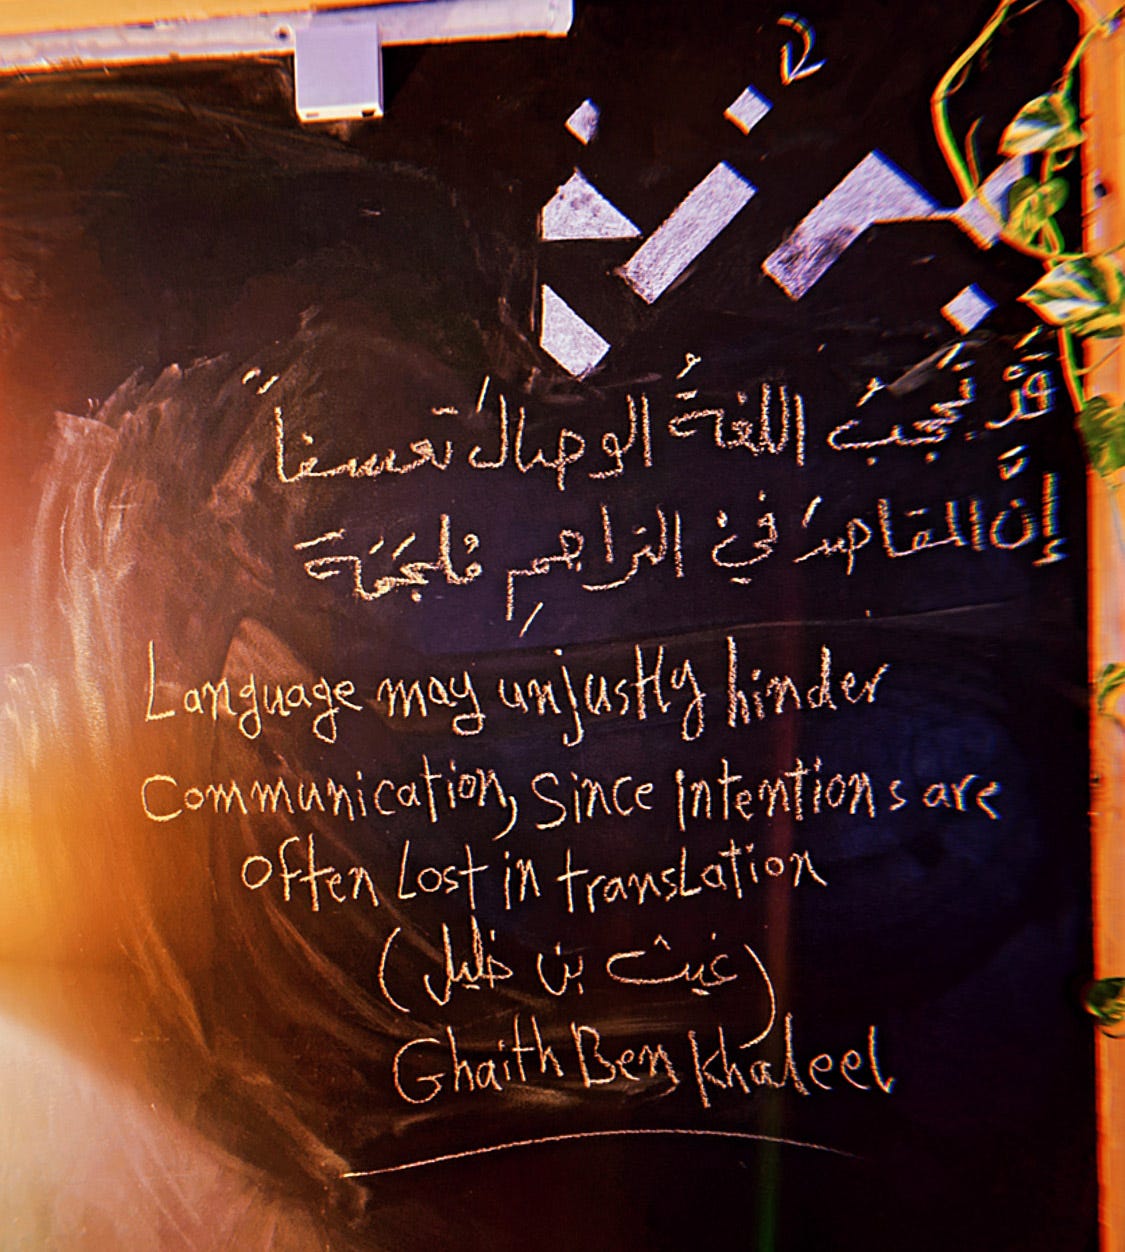 قَدْ تَحجبُ اللغةُ الوصالَ تعسفاً
إنَّ المقاصدَ في التراجمِ مُلجَمَةَ
Language may unjustly hinder
Communication, Since intentions are
often Lost in transLation
(غيث بن خليل)
Ghaith Ben Khaleel